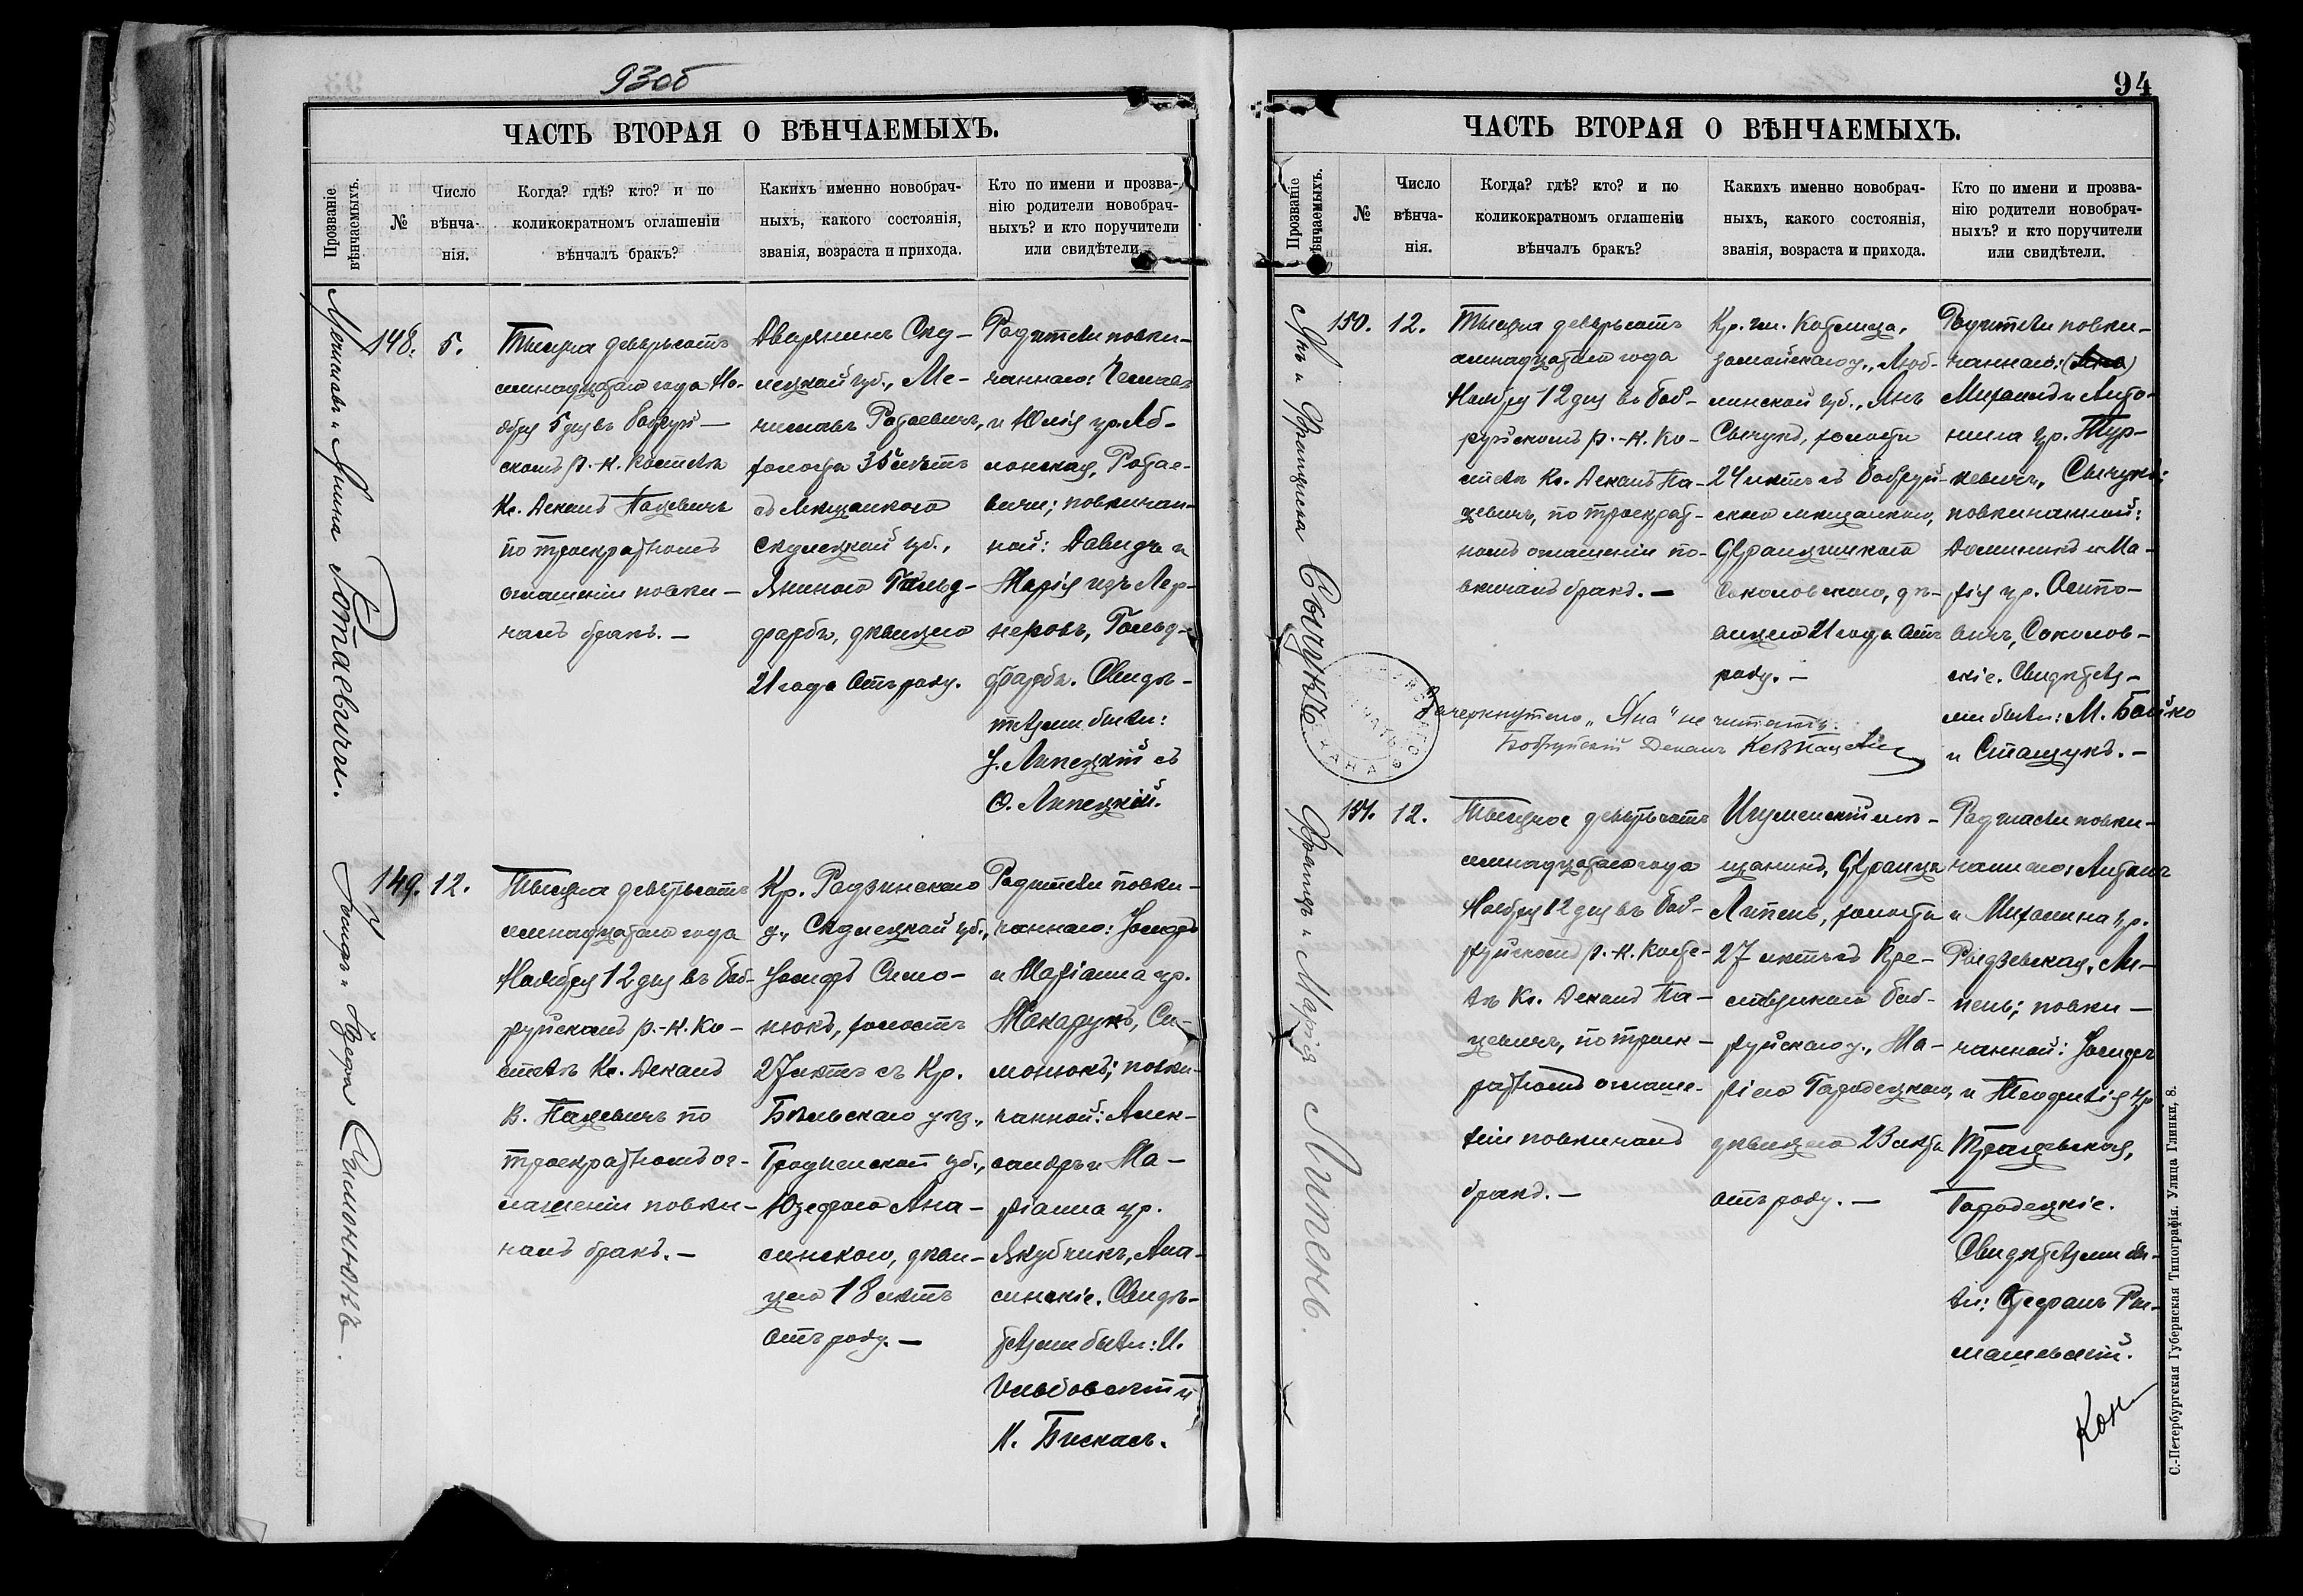 93об
ЧАСТЬ ВТОРАЯ О ВѢНЧАЕМЫХЪ.
Прозваніе
вѣнчаемыхъ.
№
Число
вѣнча-
нія.
Когда? гдѣ? кто? и по
коликократномъ оглашеніи
вѣнчалъ бракъ?
Какихъ именно новобрач-
ныхъ, какого состоянія,
званія, возраста и прихода.
Кто по имени и прозва-
нію родители новобрач-
ныхъ? и кто поручители
или свидѣтели.
Мечиславъ и Янина Ротаевичи.
148.
5.
Тысяча девятьсотъ
семнадцатаго года Но-
ября 5 дня въ Бобруй-
скомъ р.-к. костелѣ
Кс. Деканъ Пацевичъ
по троекратномъ
оглашеніи повѣн-
чалъ бракъ. —
Дворянинъ Сѣд-
лецкой губ., Ме-
числавъ Ротаевичъ,
холостъ 35 лѣтъ
съ мѣщанкою
Сѣдлецкой губ.,
Яниною Гольд-
фарбъ, дѣвицею
21 года отъ роду.
Родители повѣн-
чаннаго: Чеславъ
и Юлія ур. Яб-
лонская, Ротае-
вичи; повѣнчан-
ной: Давидъ и
Марія изъ Лер-
неровъ, Гольд-
фарбъ. Свидѣ-
телями были:
I. Липецкій съ
О. Липецкій.
Іосифъ и Юзефа Симонюкъ.
149.
12.
Тысяча девятьсотъ
семнадцатаго года
Ноября 12 дня въ Боб-
руйскомъ р.-к. ко-
стелѣ Кс. Деканъ
В. Пацевичъ по
троекратномъ ог-
лашеніи повѣн-
чалъ бракъ. —
Кр. Радзинскаго
у., Сѣдлецкой губ.,
Іосифъ Симо-
нюкъ, холостъ
27 лѣтъ съ Кр.
Бѣльскаго уѣз.,
Гродненской губ.,
Юзефою Ана-
синскою, дѣви-
цею 18 лѣтъ
отъ роду. —
Родители повѣн-
чаннаго: Іосифъ
и Маріанна ур.
Макарукъ, Си-
монюкъ; повѣн-
чанной: Алек-
сандръ и Ма-
ріанна ур.
Якубчикъ, Ана-
синскіе. Свидѣ-
телями были: И.
и
К. Бискасъ.
94
ЧАСТЬ ВТОРАЯ О ВѢНЧАЕМЫХЪ.
Прозваніе
вѣнчаемыхъ.
№
Число
вѣнча-
нія.
Когда? гдѣ? кто? и по
коликократномъ оглашеніи
вѣнчалъ бракъ?
Какихъ именно новобрач-
ныхъ, какого состоянія,
званія, возраста и прихода.
Кто по имени и прозва-
нію родители новобрач-
ныхъ? и кто поручители
или свидѣтели.
Янъ и Францишка Сычукъ
150.
12.
Тысяча девятьсотъ
семнадцатаго года
Ноября 12 дня въ Боб-
руйскомъ р.-к. ко-
стелѣ Кс. Деканъ Па-
цевичъ, по троекрат-
номъ оглашеніи по-
вѣнчалъ бракъ. —
Кр. гм.
Замойскаго у., Люб-
линской губ., Янъ
Сычукъ, холостъ
24 лѣтъ съ Бобруй-
скою мѣщанкою,
Францишкою
Соколовскою, дѣ-
вицею 21 года отъ
роду. —
Родители повѣн-
чаннаго: (Яна)
Михаилъ и Анто-
нина ур. Тур-
кевичъ, Сычукъ;
повѣнчанной:
Доминикъ и Ма-
рія ур. Осипо-
вичъ, Соколов-
скіе. Свидѣтеля-
ми были: М. Бойко
и Сташукъ. —
Зачеркнутого „Яна" не читать.
Бобруйскій Деканъ Кс В Пацевичъ
Францъ и Марія Липень.
151.
12.
Тысяча девятьсотъ
семнадцатаго года
Ноября 12 дня въ Боб-
руйскомъ р.-к. косте-
лѣ Кс. Деканъ Па-
цевичъ, по троек-
ратномъ оглаше-
ніи повѣнчалъ
бракъ. —
Игуменскій мѣ-
щанинъ, Францъ
Липень, холостъ
27 лѣтъ съ Кре-
стьянкою Боб-
руйскаго у., Ма-
ріею Городецкою,
дѣвицею 23 лѣтъ
отъ роду. —
Родители повѣн-
чаннаго: Антонъ
и Михалина ур.
Ли-
пень; повѣн-
чанной: Іосифъ
и Теофилія ур.
Городецкіе.
Свидѣтелями бы-
ли: Стефанъ Ри-
машевскій.
Кон
С.-Петербургская Губернская Типографія. Улица Глинки, 8.